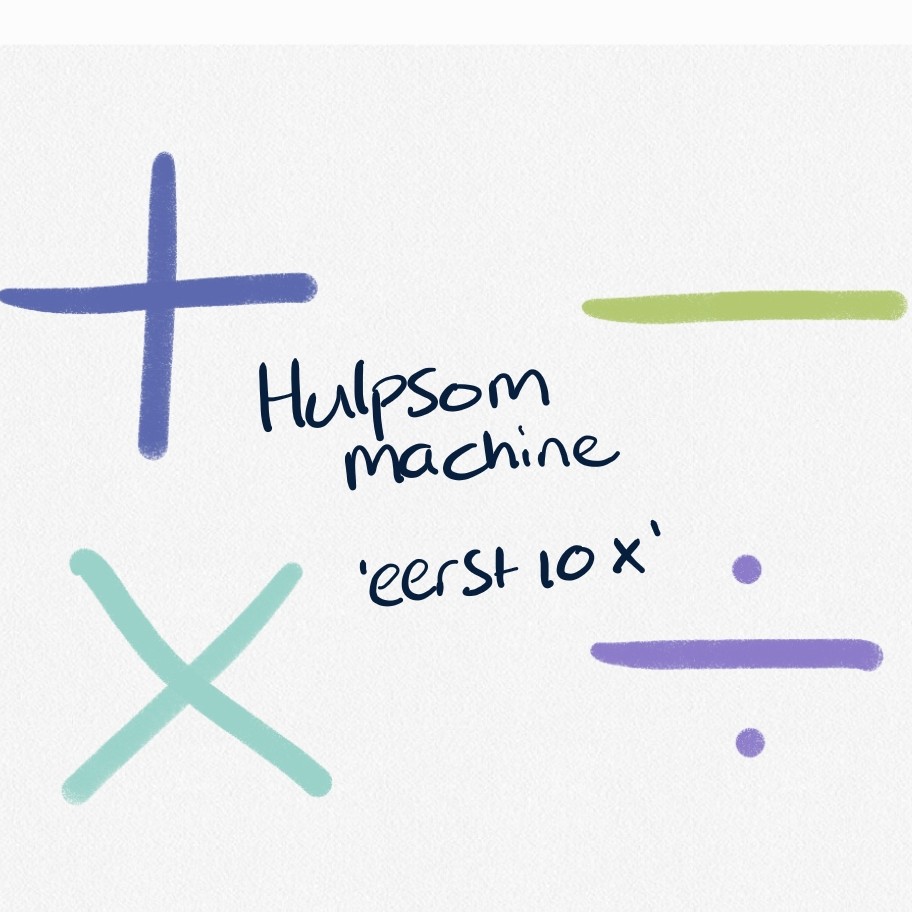 Hulpsom
machine
'eerst 10 x'